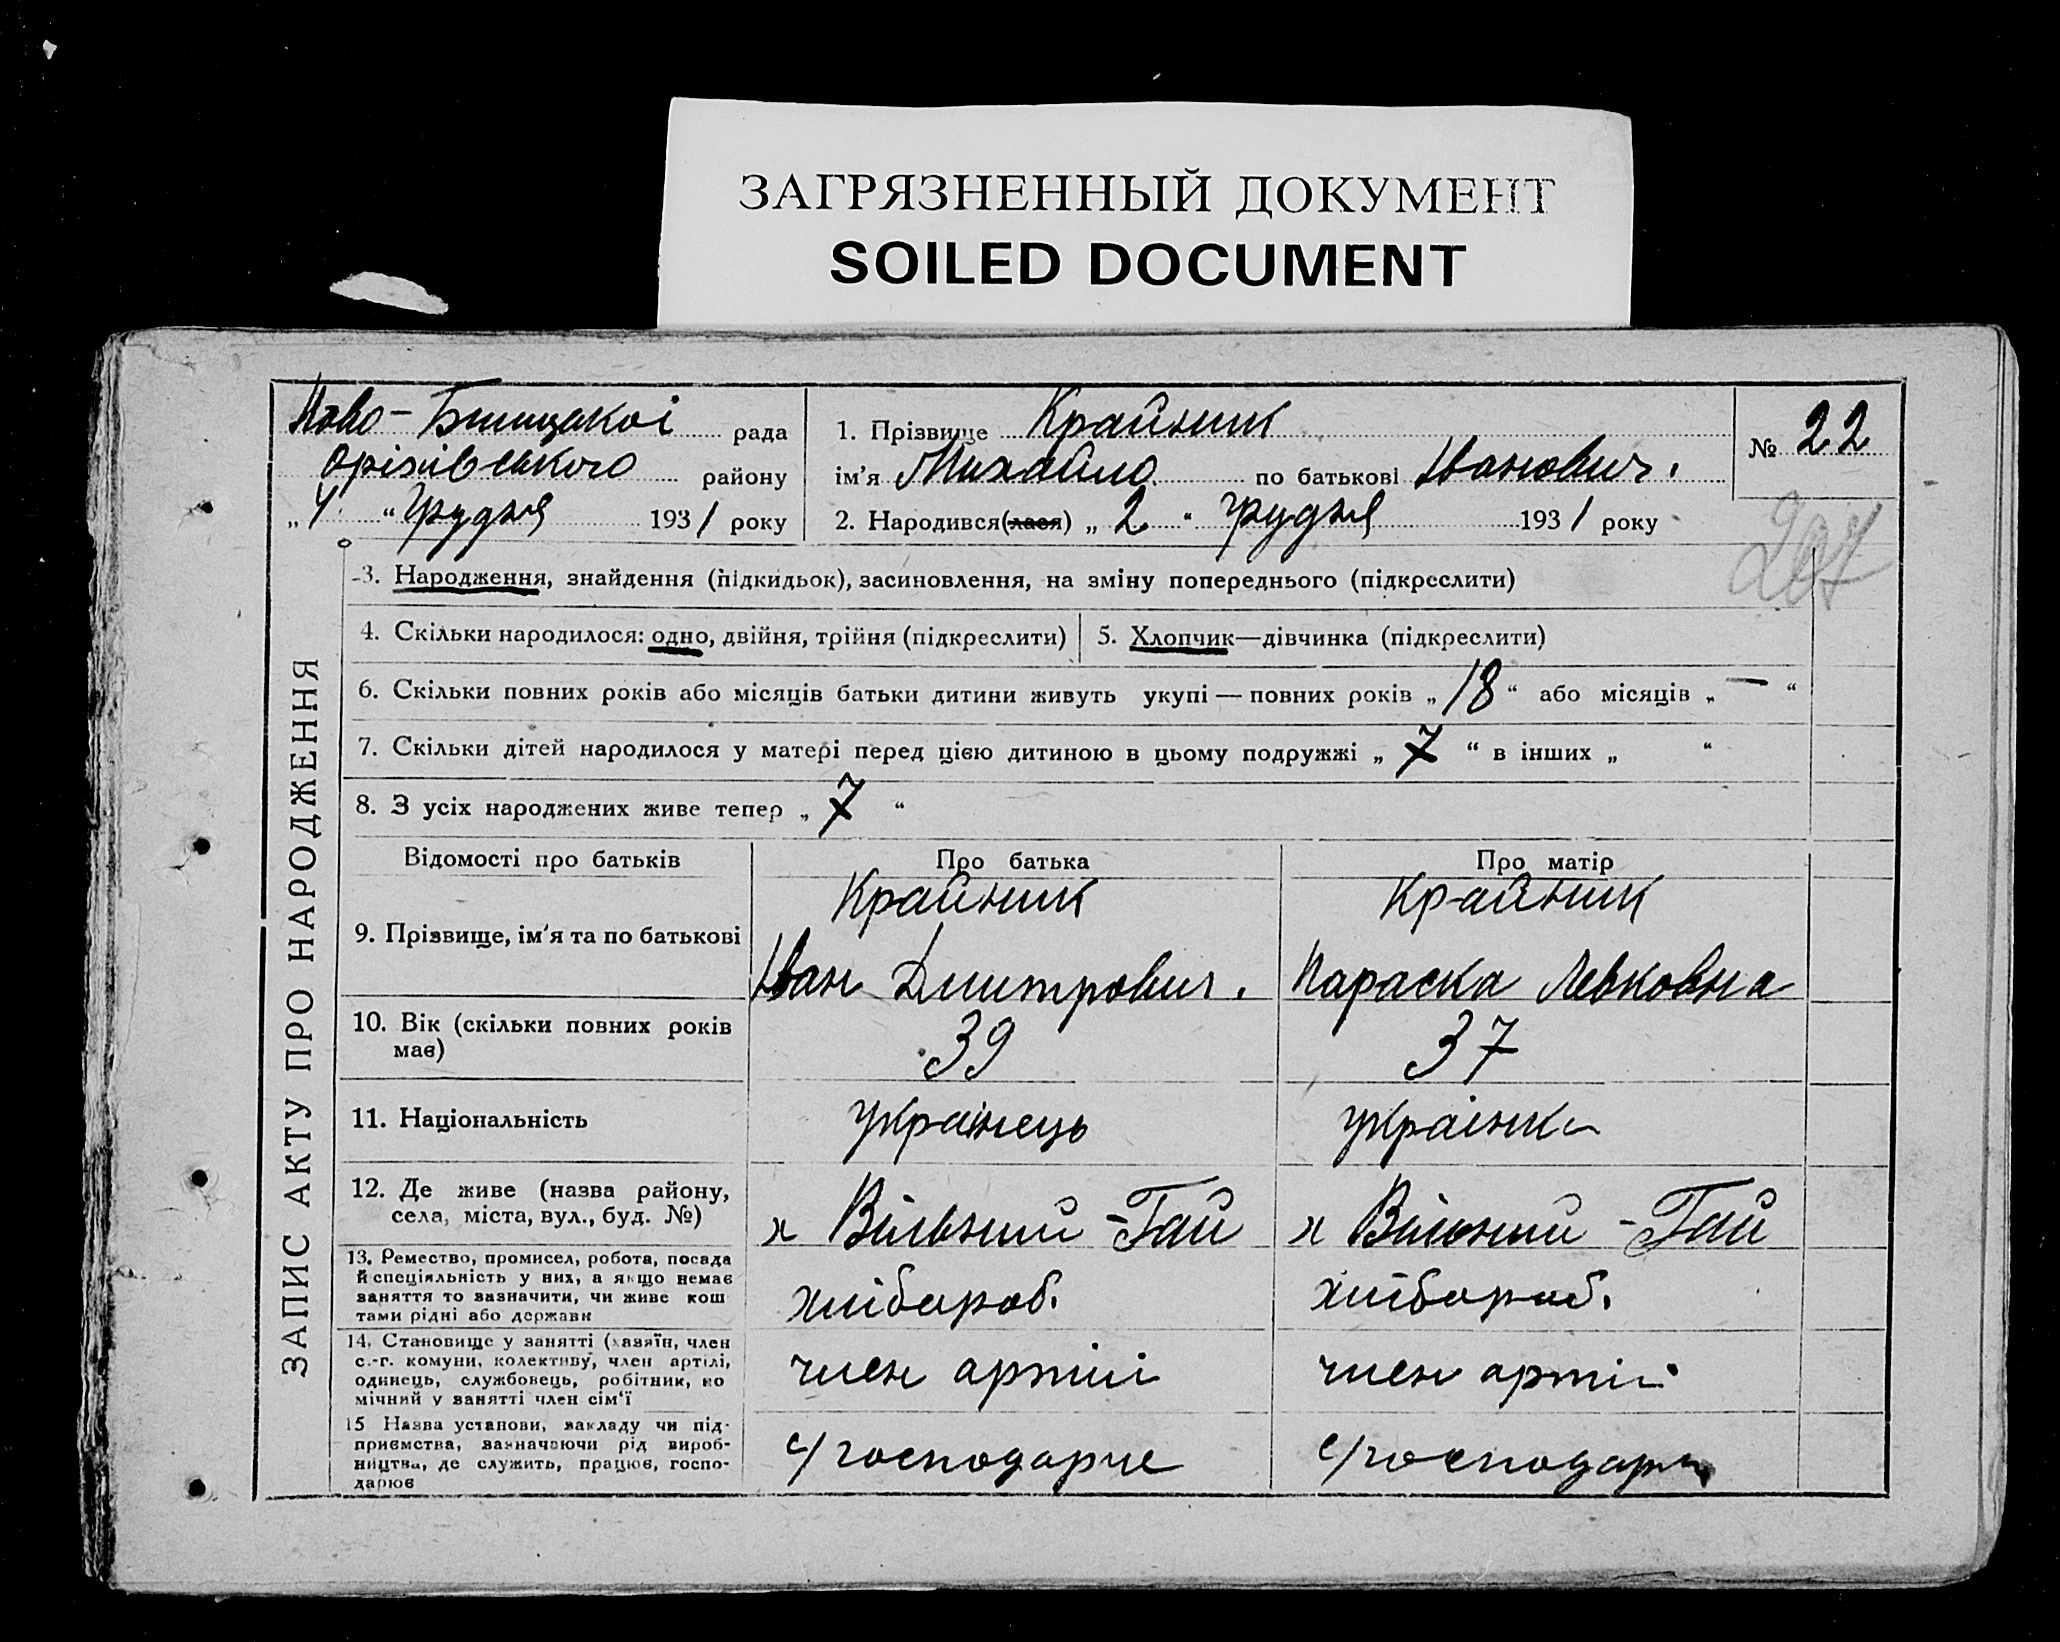 ЗАГРЯЗНЕННЫЙ ДОКУМЕНТ
SOILED DOCUMENT
Ново- рада
Оріхівського району
„4“ Грудня 1931 року
1. Прізвище Крайник
ім'я Михайло по батькові Іванович.
2. Народився(лася) „2“ Грудня 1931 року
№ 22
207
ЗАПИС АКТУ ПРО НАРОДЖЕННЯ
3. Народження, знайдення (підкидьок), засиновлення, на зміну попереднього (підкреслити)
4. Скільки народилося: одно, двійня, трійня (підкреслити)
5. Хлопчик—дівчинка (підкреслити)
6. Скільки повних років або місяців батьки дитини живуть укупі — повних років „18“ або місяців „—“
7. Скільки дітей народилося у матері перед цією дитиною в цьому подружжі „7“ в інших „ “
8. З усіх народжених живе тепер „7“
Відомості про батьків
Про батька
Про матір
9. Прізвище, ім'я та по батькові
Крайник
Іван Дмитрович.
Крайник
Параска Левковна
10. Вік (скільки повних років
має)
39
37
11. Національність
українець
українка
12. Де живе (назва району,
села, міста, вул., буд. №)
х Вільний-Гай
х Вільний-Гай
13. Ремество, промисел, робота, посада
й спеціяльність у них, а якщо немає
заняття то зазначити, чи живе кош
тами рідні або держави
хлібороб.
хлібороб.
14. Становище у занятті (хазяїн, член
с.-г. комуни, колективу, член артілі,
одинець, службовець, робітник, по
мічний у занятті член сім'ї
член артілі
член артілі
15 Назва установи, закладу чи під-
приємства, зазначаючи рід вироб-
ництва, де служить, працює, госпо-
дарює
с/господарче
с/господарч